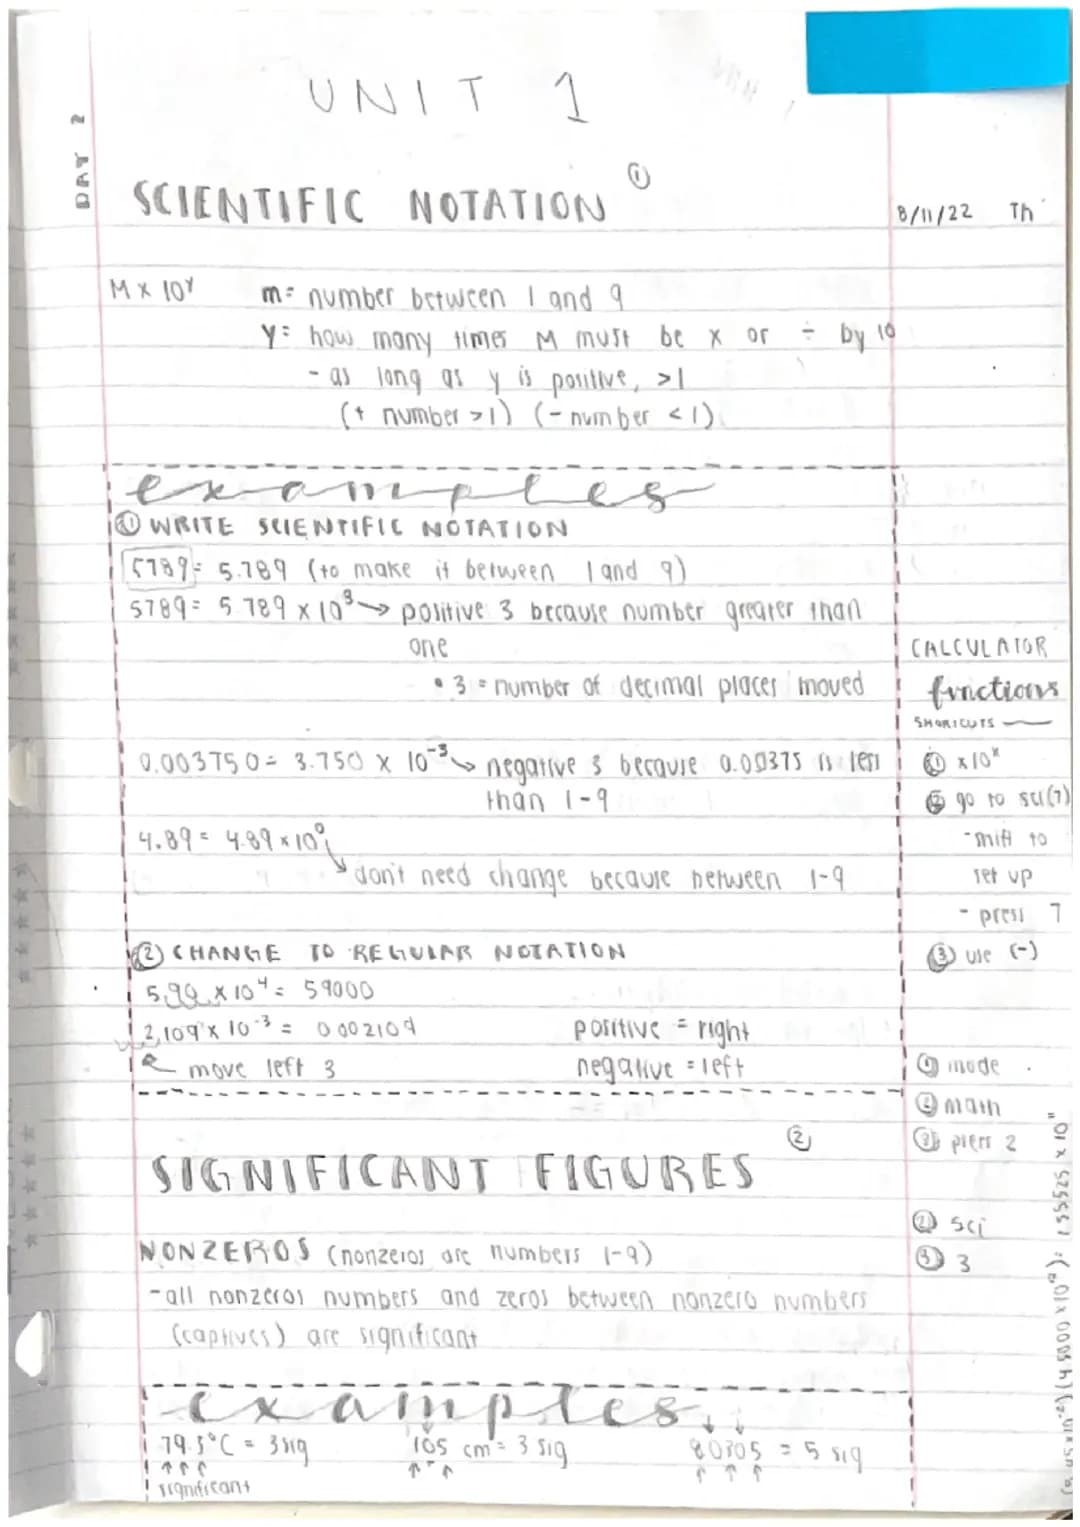 UNIT 1
DAY 2
SCIENTIFIC NOTATION ①
8/11/22 Th
M x 10^y m= number between 1 and 9
y= how many times M must be x or ÷ by 10
- as long as y is positive, >1
(+ number >1) (- number <1)
examples
① WRITE SCIENTIFIC NOTATION
5789= 5.789 (to make it between 1 and 9)
5789= 5.789 x 10^3 → positive 3 because number greater than
one
• 3 = number of decimal places moved
0.003750= 3.750 x 10^-3 → negative 3 because 0.00375 is less
than 1-9
4.89 = 4.89 x 10^0
don't need change because between 1-9
② CHANGE TO REGULAR NOTATION
5.90 x 10^4 = 59000
2.109 x 10^-3 = 0.002109
positive = right
move left 3
negative = left
CALCULATOR
functions
SHORTCUTS
① x10^x
② go to sci(7)
- shift to
set up
- press 7
③ use (-)
① mode
② math
③ press 2
② sci
③ 3
SIGNIFICANT FIGURES ②
NONZEROS (nonzeros are numbers 1-9)
- all nonzeros numbers and zeros between nonzero numbers
(captives) are significant
examples
79.3°C = 3 sig
105 cm = 3 sig
80305 = 5 sig
significant